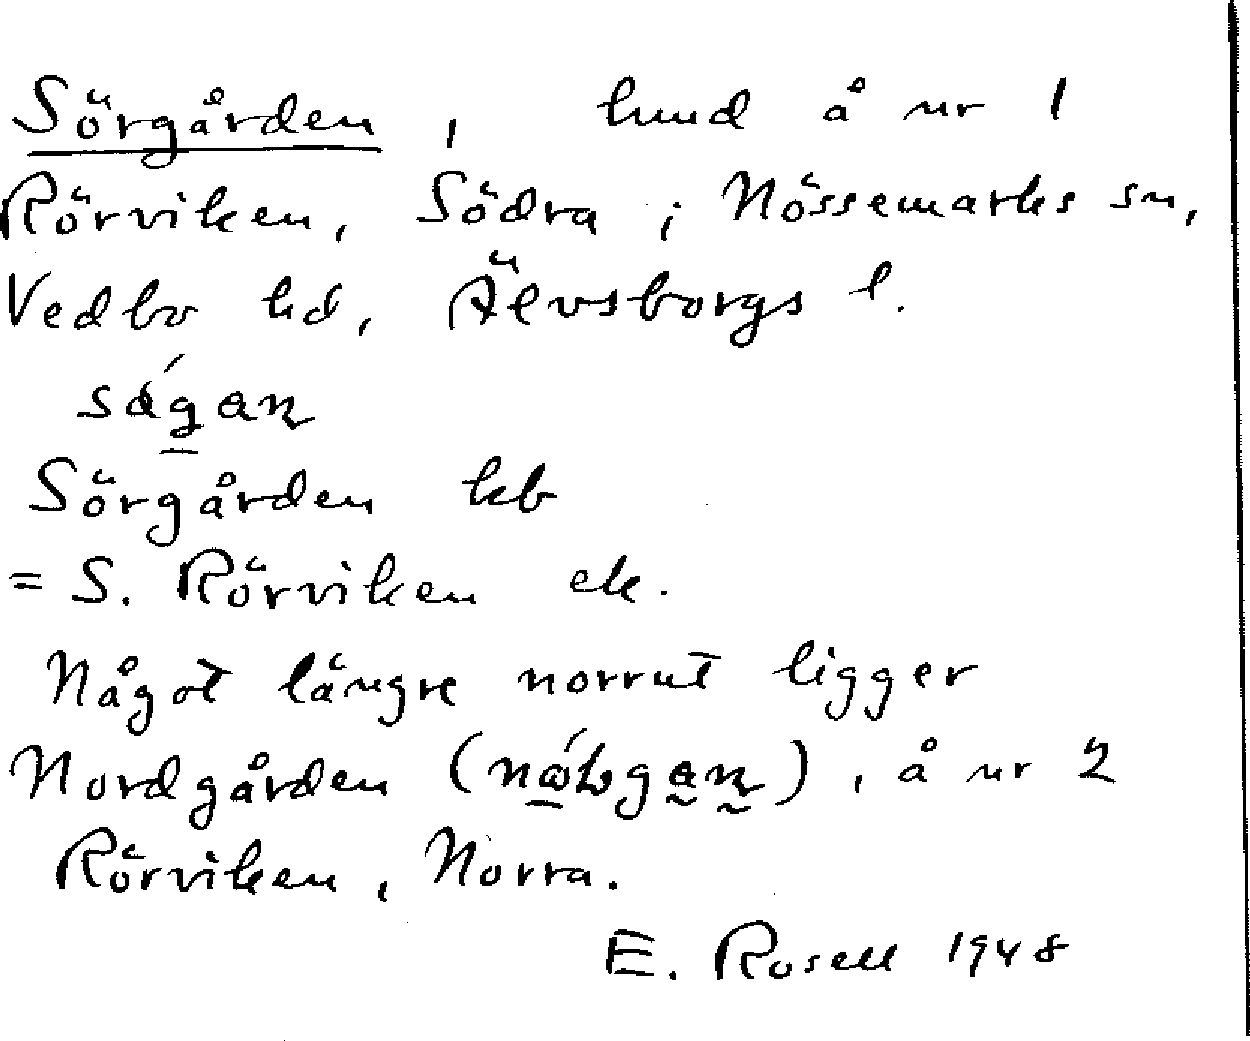 Sörgården, hmd å nr 1
Rörviken, Södra i Nössemarks sn,
Vedbo hd, Älvsborgs l.
Sörgården kb
= S. Rörviken ek.
Något längre norrut ligger
Nordgården, å nr 2
Rörviken, Norra.
E. Rosell 1948